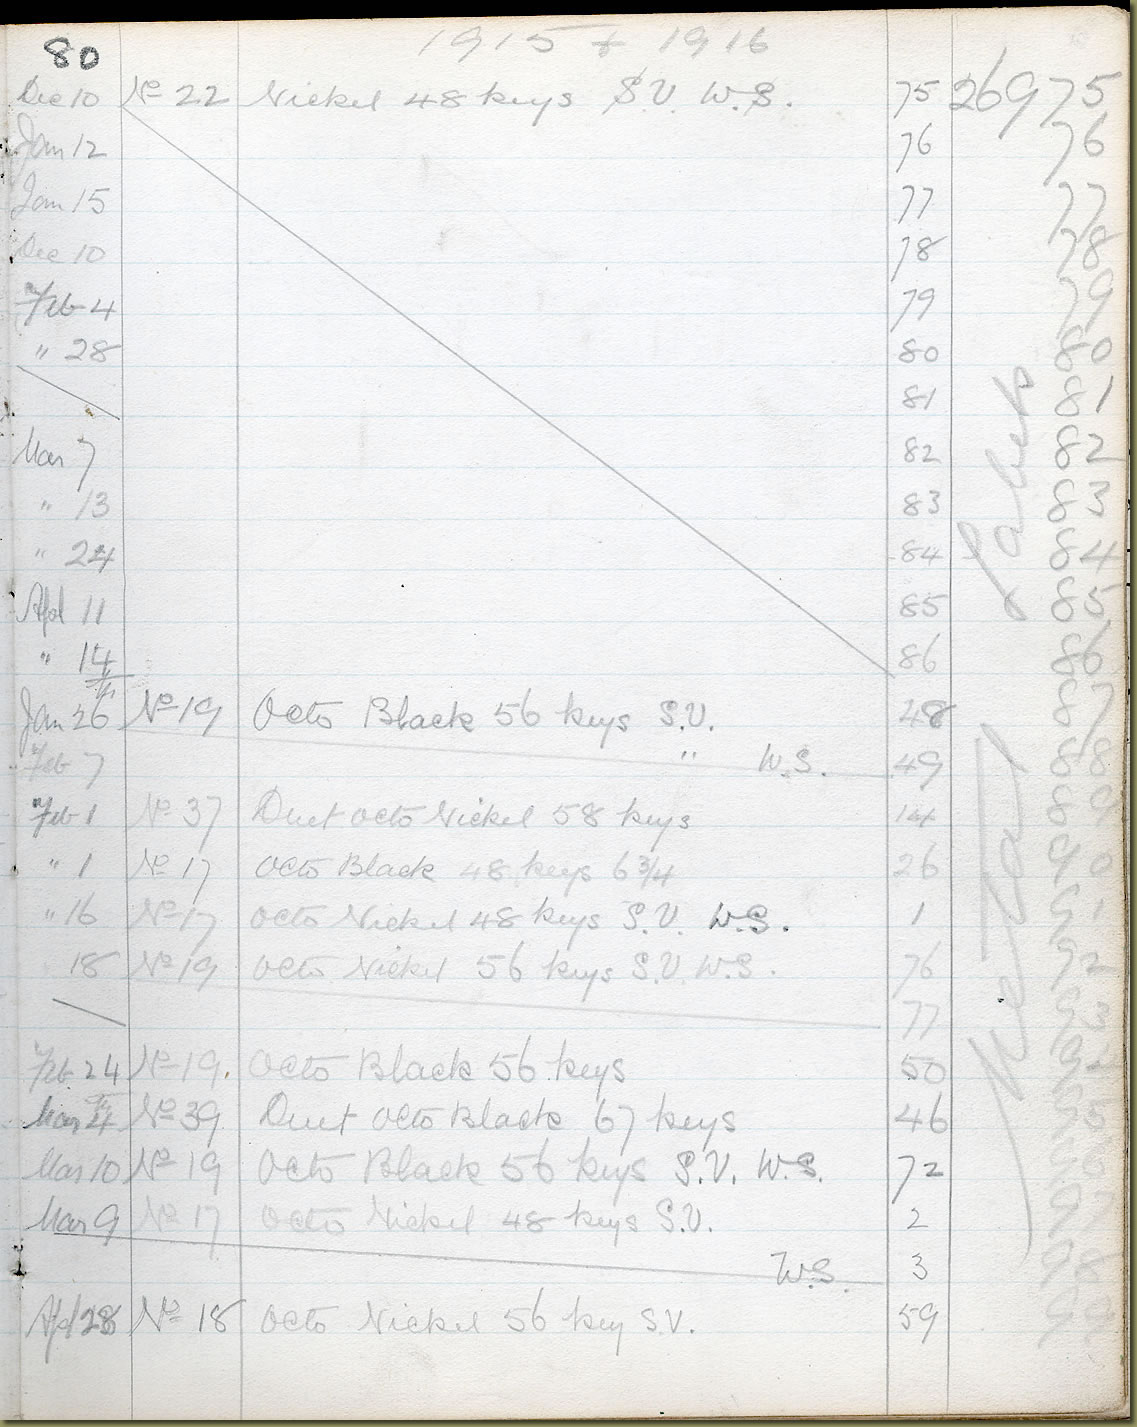 80 1915 + 1916
Dec 10 No 22 Nickel 48 keys S.V. W.S. 75 26975
Jan 12 76 76
Jan 15 77 77
Dec 10 78 78
Feb 4 79 79
" 28 80 80
81 81
Mar 7 82 82
" 13 83 83
" 24 84 84
Apl 11 85 85
" 14 86 86
Jan 26 No 19 Octo Black 56 keys S.V. 48 87
Feb 7 " W.S. 49 88
Feb 1 No 37 Duet Octo Nickel 58 keys 14 89
" 1 No 17 Octo Black 48 keys 6 3/4 26 90
" 16 No 17 Octo Nickel 48 keys S.V. W.S. 1
18 No 19 Octo Nickel 56 keys S.V. W.S. 76 92
77
Feb 24 No 19. Octo Black 56 keys 50
Mar 4 No 39 Duet Octo Black 67 keys 46
Mar 10 No 19 Octo Black 56 keys S.V. W.S. 72
Mar 9 No 17 Octo Nickel 48 keys S.V. 2
W.S. 3
Apl 28 No 18 Octo Nickel 56 key S.V. 59
Labels
Metal